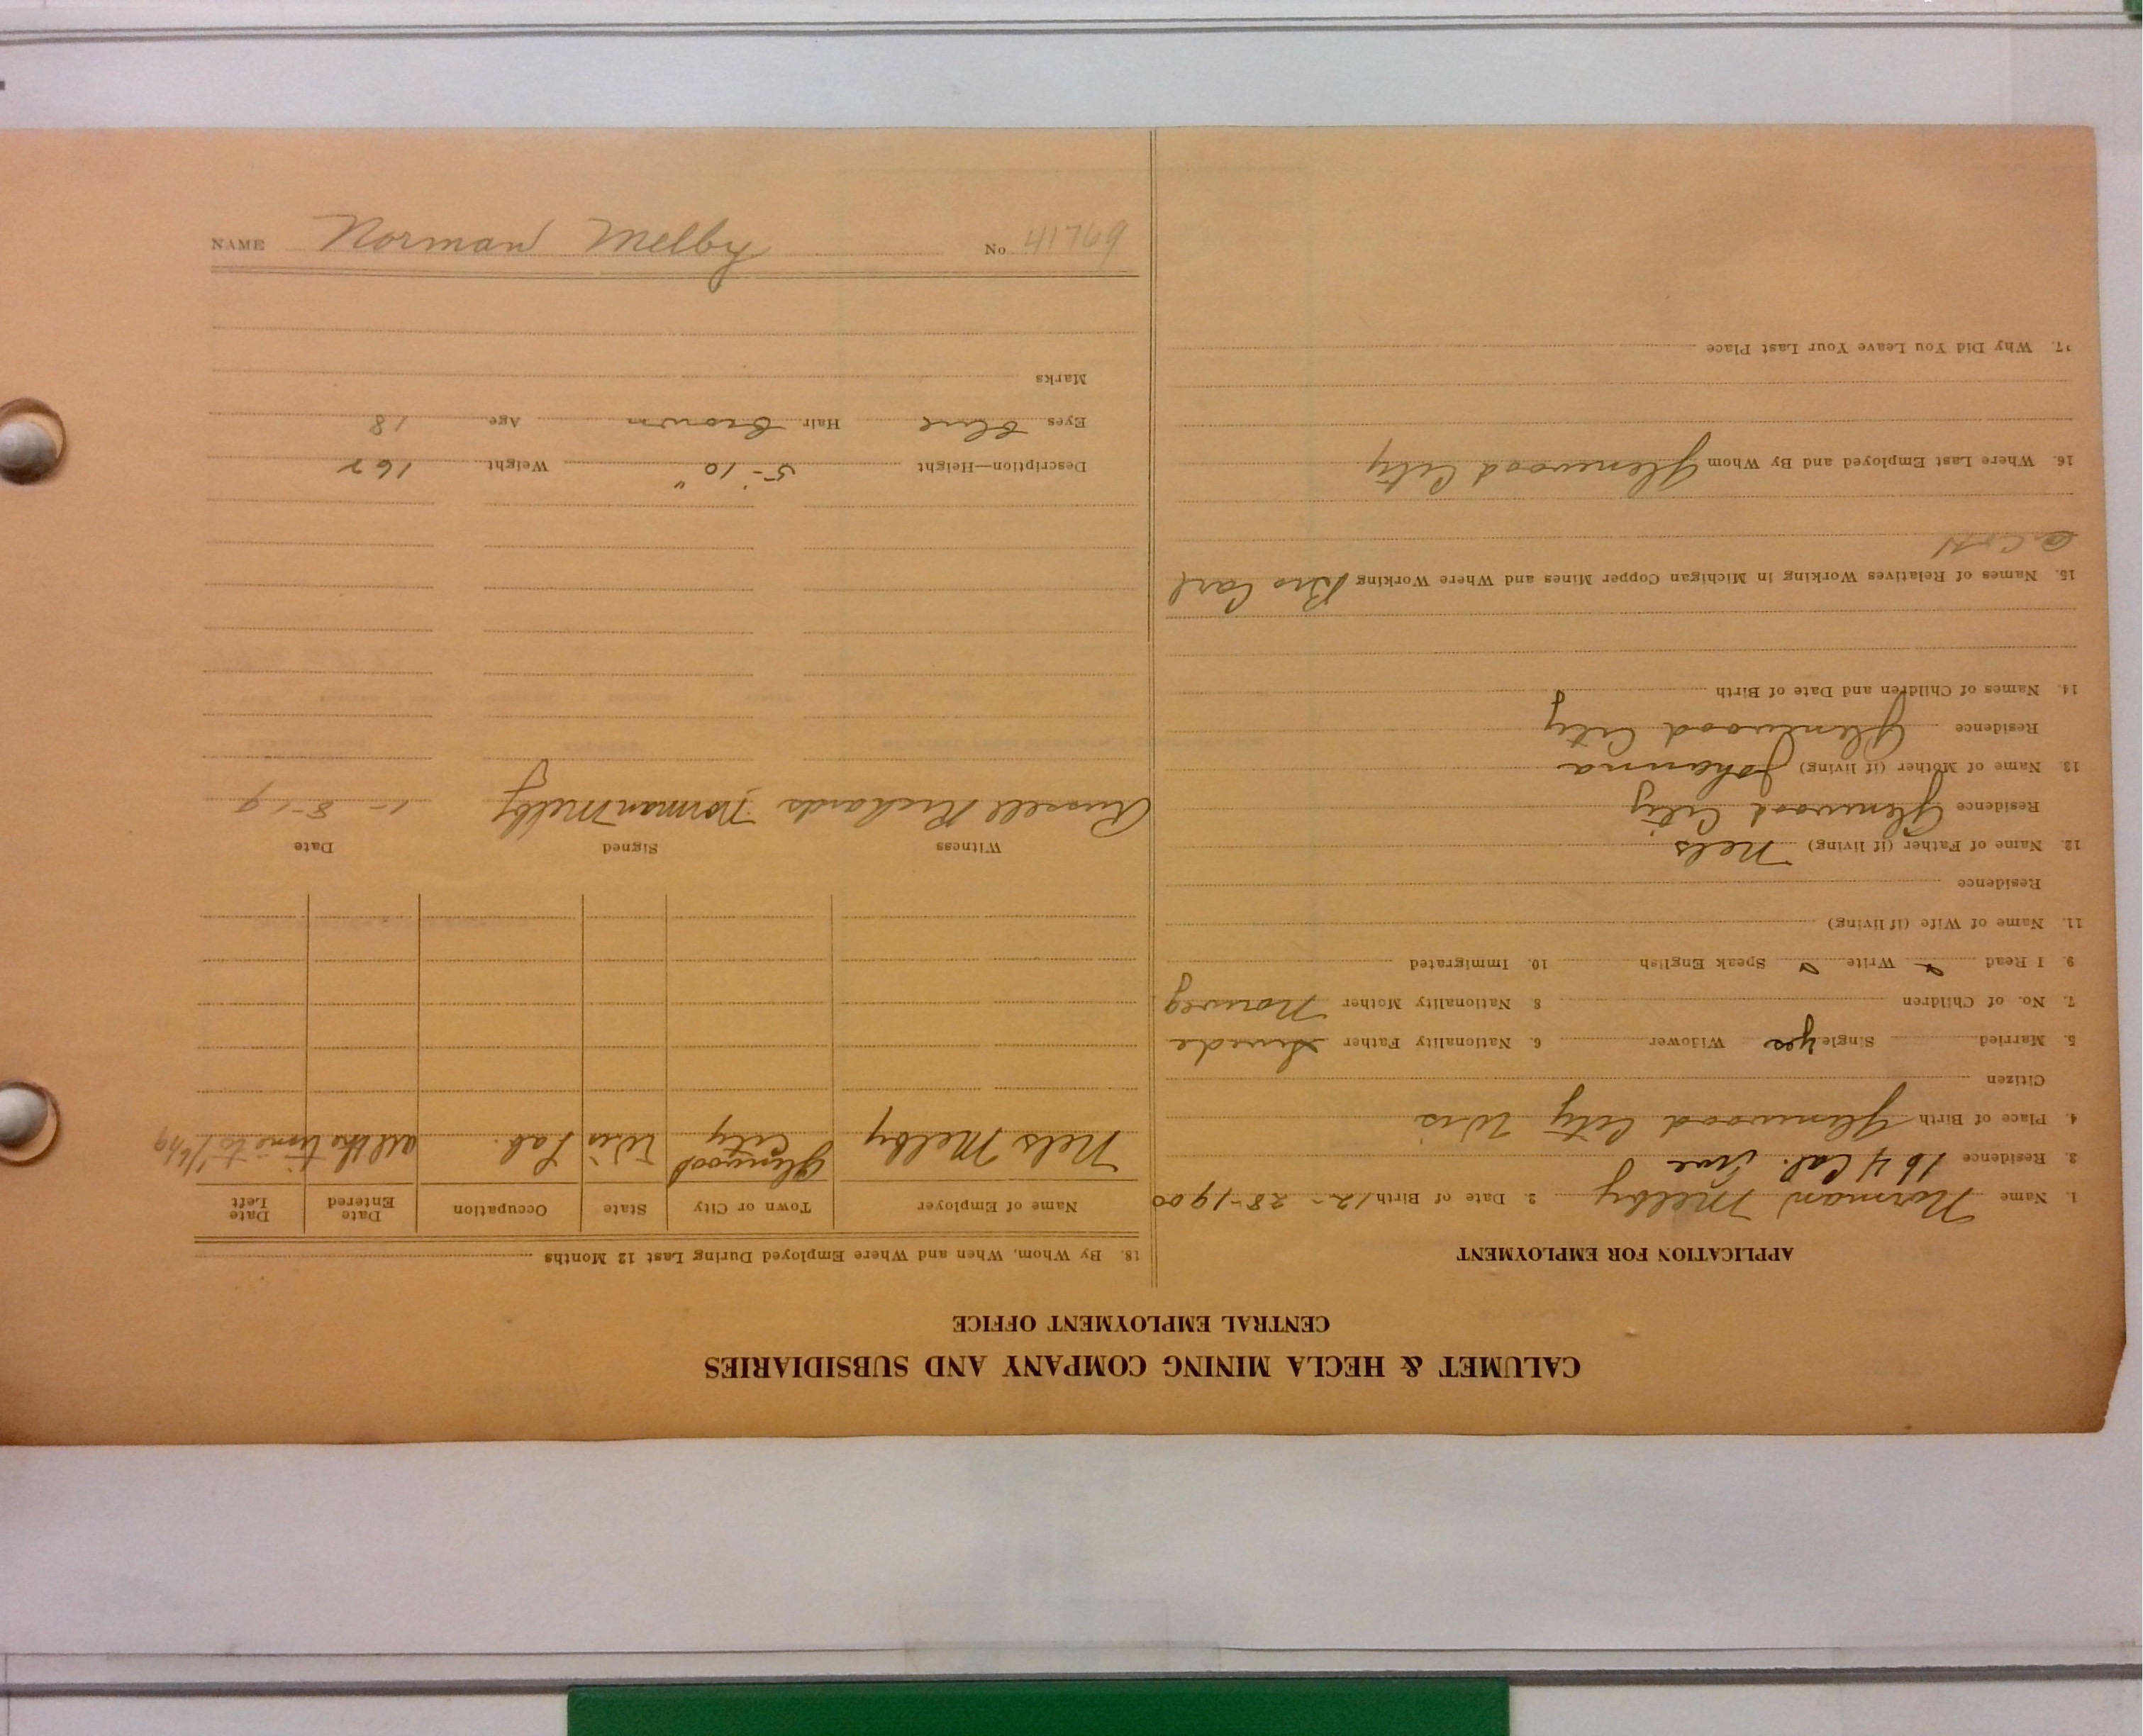 CALUMET & HECLA MINING COMPANY AND SUBSIDIARIES
CENTRAL EMPLOYMENT OFFICE
APPLICATION FOR EMPLOYMENT
1. Name Norman Melby 2. Date of Birth 12-28-1900
3. Residence 164 Cal. Ave
4. Place of Birth Glenwood City Wis
Citizen
5. Married Single yes Widower 6. Nationality Father Swede
7. No. of Children 8 Nationality Mother Norweg
9. I Read Write Speak English 10. Immigrated
11. Name of Wife (if living)
Residence
12. Name of Father (if living) Nels
Residence Glenwood City
13. Name of Mother (if living) Johanna
Residence Glenwood City
14. Names of Children and Date of Birth
15. Names of Relatives Working in Michigan Copper Mines and Where Working Bro Carl
16. Where Last Employed and By Whom Glenwood City
17. Why Did You Leave Your Last Place
18. By Whom, When and Where Employed During Last 12 Months
Name of Employer Town or City State Occupation Date Entered Date Left
Nels Melby Glenwood City Wis Lab. all the time to 1/6/19
Witness Signed Date
Russell Richards Norman Melby 1-8-19
Description—Height 5' 10" Weight 162
Eyes Blue Hair Brown Age 18
Marks
NAME Norman Melby No. 41769